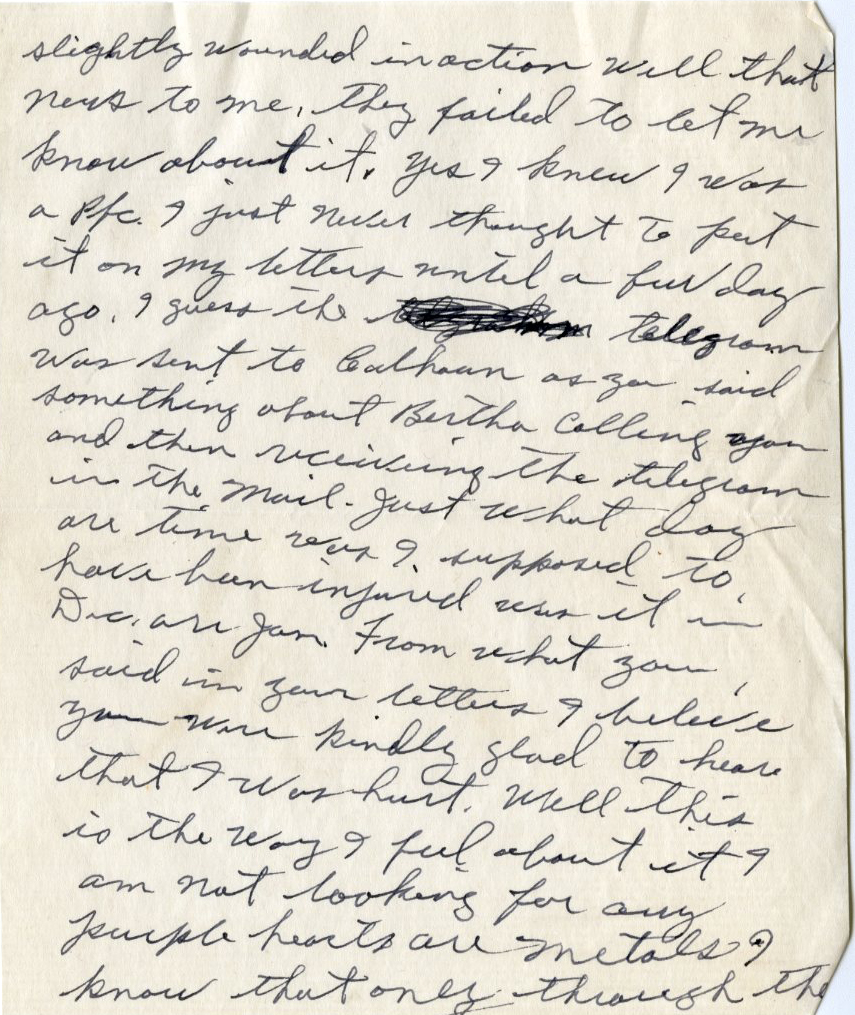 slightly wounded in action well that
news to me, they failed to let me
know about it. Yes I knew I was
a Pfc. I just never thought to put
it on my letters until a few day
ago. I guess the telegram
was sent to Calhoun as you said
something about Bertha Calling you
and then receiving the telegram
in the mail. Just what day
are time was I supposed to
have been injured was it in
Dec. are Jan. From what you
said in your letters I believe
you were kindly glad to hear
that I was hurt. Well this
is the way I feel about it I
am not looking for any
purple hearts are metals I
know that only through the